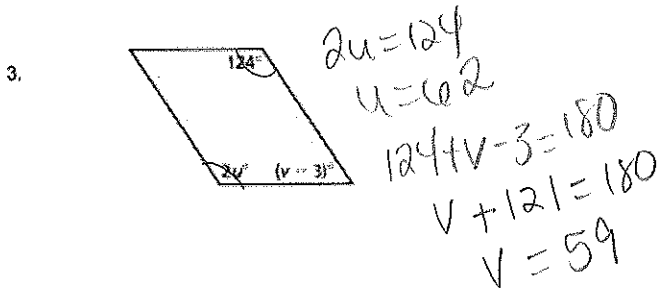 3.
124°
2u°
(v - 3)°
2u=124
u=62
124+v-3=180
v+121=180
v=59